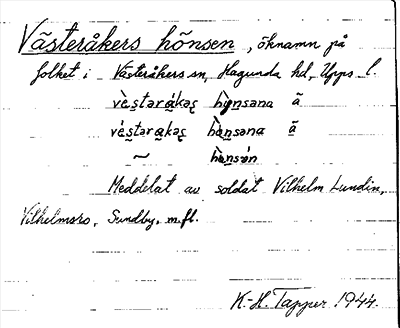 Västeråkers hönsen, öknamn på
folket i Västeråkers sn, Hagunda hd, Upps. l.
vès̲tarákaş hònsana ã
vés̲tarakaş hònsana ã
~ hònsán
Meddelat av soldat Vilhelm Lundin,
Vilhelmsro, Sundby, m.fl.
K.-H. Tapper 1944.